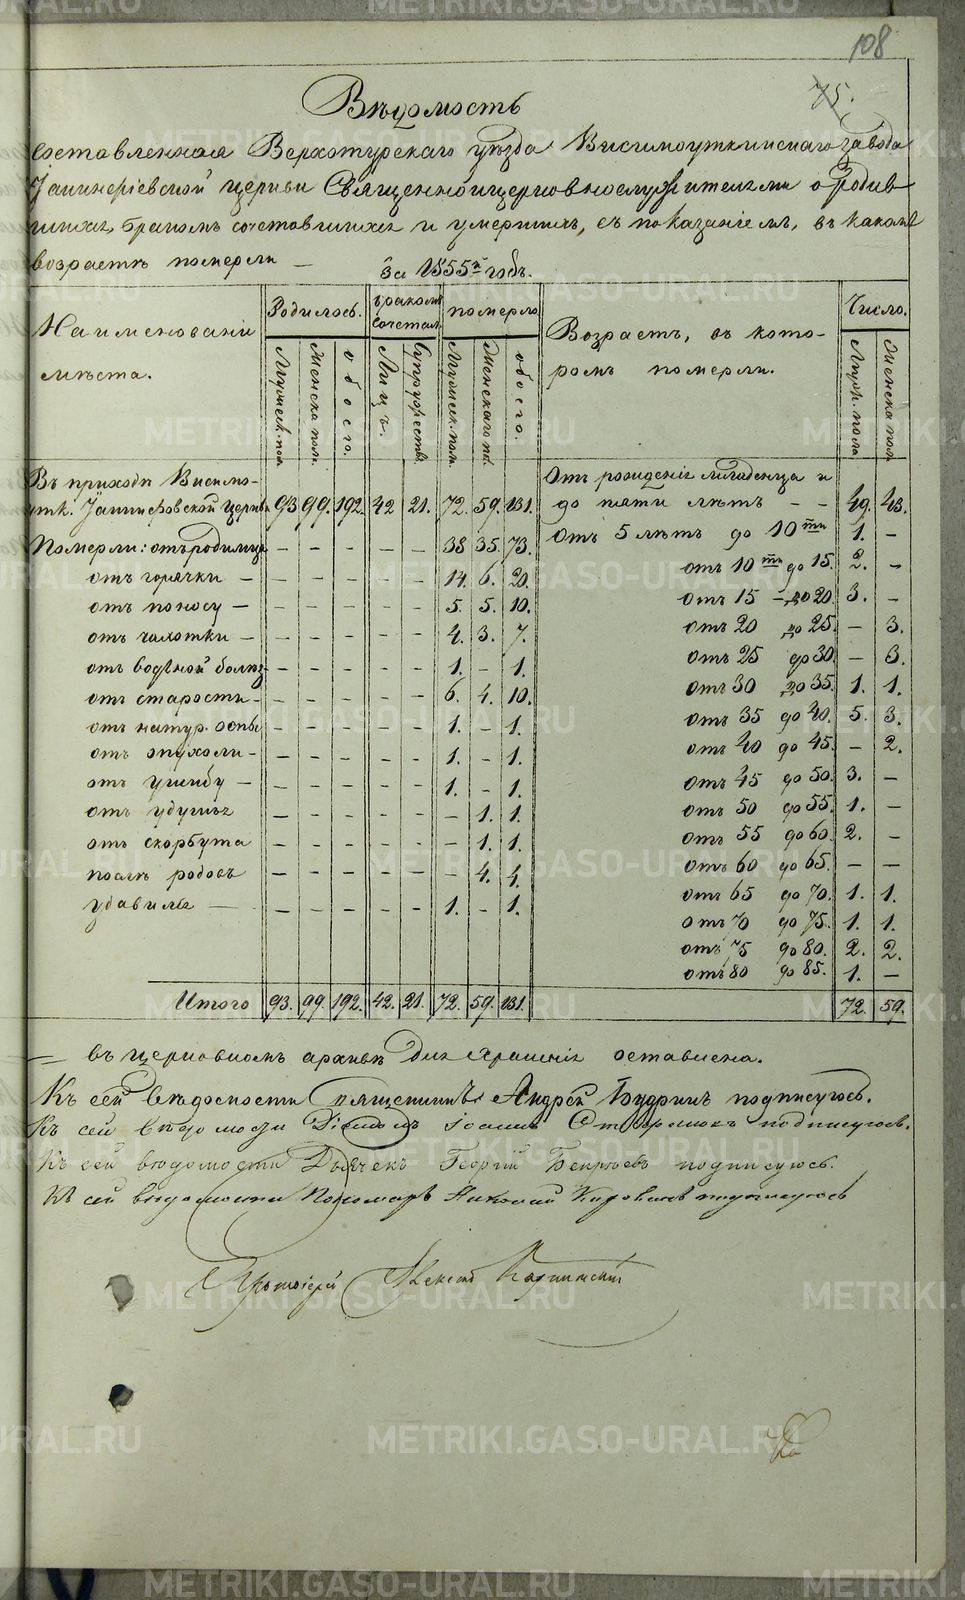 108
75.
Вѣдомость
составленная Верхотурскаго уѣзда Висимоуткинскаго завода
церкви Священноицерковнослужителями о родив-
шихся, бракомъ сочетавшихся и умершихъ, съ показаніемъ, въ какомъ
возрастѣ померли — за 1855й годъ.
Наименованіе мѣста. Родилось. Бракомъ сочетал. Померло. Возрастъ, въ которомъ померли. Число.
Мужеск. пол. Женска пол. обоего. Лицъ. Супружествъ. Мужеск. пол. Женскаго пол. обоего. Мужс. пола Женска пол.
Въ приходѣ Висимо- Отъ рожденія младенца и
утк. церкви 93 99. 192. 42 21. 72. 59. 131. до пяти лѣтъ - - 49. 43.
Померли: отъ родимца - - - - - 38 35. 73. Отъ 5 лѣтъ до 10ти 1. -
отъ горячки - - - - - - 14. 6. 20. отъ 10ти до 15. 2. -
отъ поносу - - - - - - 5. 5. 10. отъ 15 - до 20. 3. -
отъ чахотки - - - - - - 4. 3. 7. отъ 20 до 25. - 3.
отъ водяной болѣз. - - - - - 1. - 1. отъ 25 до 30. - 3.
отъ старости - - - - - - 6. 4. 10. отъ 30 до 35. 1. 1.
отъ натур. оспы - - - - - 1. - 1. отъ 35 до 40. 5. 3.
отъ опухоли - - - - - - 1. - 1. отъ 40 до 45. - 2.
отъ ушибу - - - - - - 1. - 1. отъ 45 до 50. 3. -
отъ удушья - - - - - - 1. 1. отъ 50 до 55. 1. -
отъ скорбута - - - - - - 1. 1. отъ 55 до 60. 2. -
послѣ родовъ - - - - - 4. 4. отъ 60 до 65. - -
удавился - - - - - - 1. - 1. отъ 65 до 70. 1. 1.
отъ 70 до 75. 1. 1.
отъ 75 до 80. 2. 2.
отъ 80 до 85. 1. -
Итого 93. 99. 192. 42. 21. 72. 59. 131. 72. 59.
— въ церковномъ архивѣ для храненія оставлена.
Къ сей вѣдомости священникъ Андрей Будринъ подписуюсь.
Къ сей вѣдомости Діаконъ Іоаннъ подписуюсь.
Къ сей вѣдомости Дьячекъ Георгій подписуюсь.
Къ сей вѣдомости Пономарь Николай подписуюсь
Протоіерей Алексій Карпинскій
METRIKI.GASO-URAL.RU